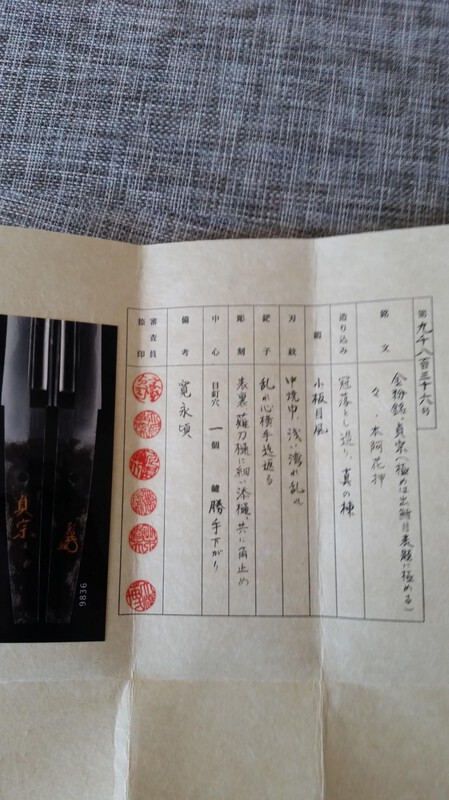 第九千八百三十六号
銘文
金粉銘・貞宗(極めは出鞘目表題に極める)
々・本阿花押
造り込み
冠落とし造り、真の棟
鍛
小板目風
刃紋
中焼巾、浅い湾れ乱れ
鋩子
乱れ心横手迄返る
彫刻
表裏薙刀樋に細い添樋共に角止め
中心
目釘穴 一個 鑢 勝手下がり
備考
寛永頃
審査員
捺印
貞宗
9836